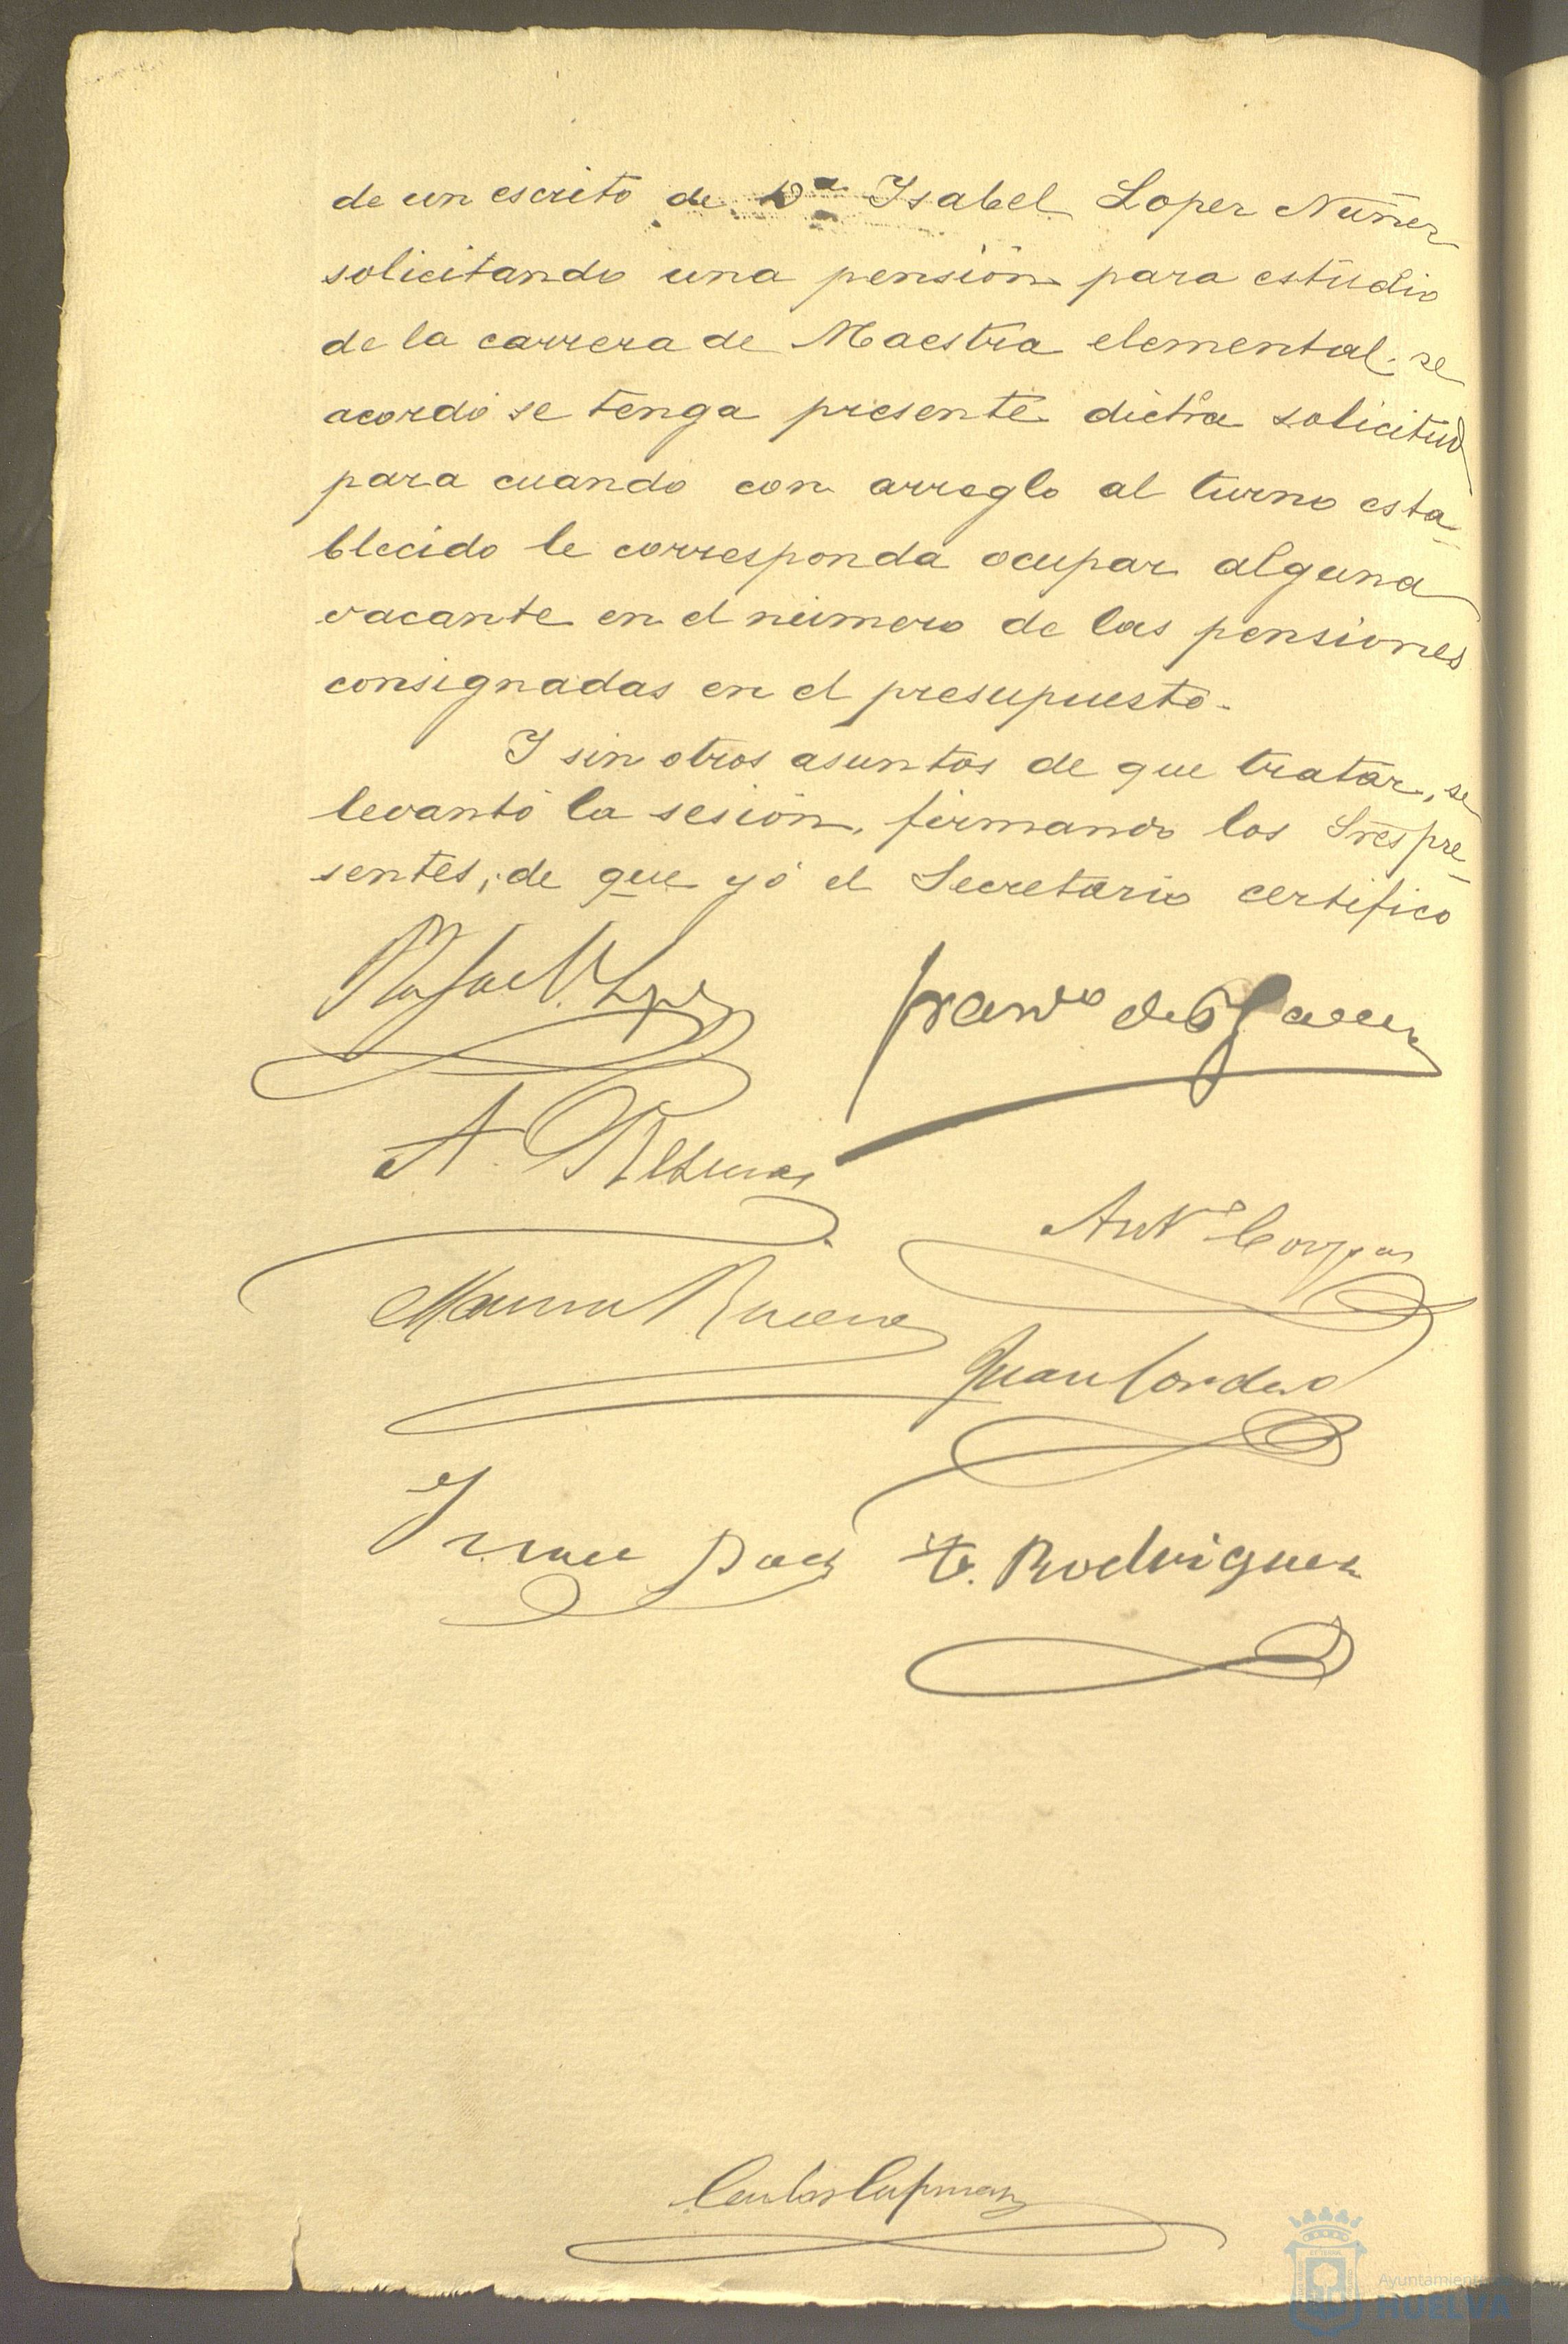 de un escrito de Dª Isabel Lopez Nuñez
solicitando una pensión para estudio
de la carrera de Maestra elemental. se
acordó se tenga presente dicha solicitud
para cuando con arreglo al turno esta-
blecido le corresponda ocupar alguna
vacante en el número de las pensiones
consignadas en el presupuesto.
Y sin otros asuntos de que tratar, se
levantó la sesión, firmando los Sres pre-
sentes, de que yó el Secretario certifico
Rafael
Franco de
A.
Antº
Juan Cordero
F. Rodriguez
Ayuntamiento
HUELVA